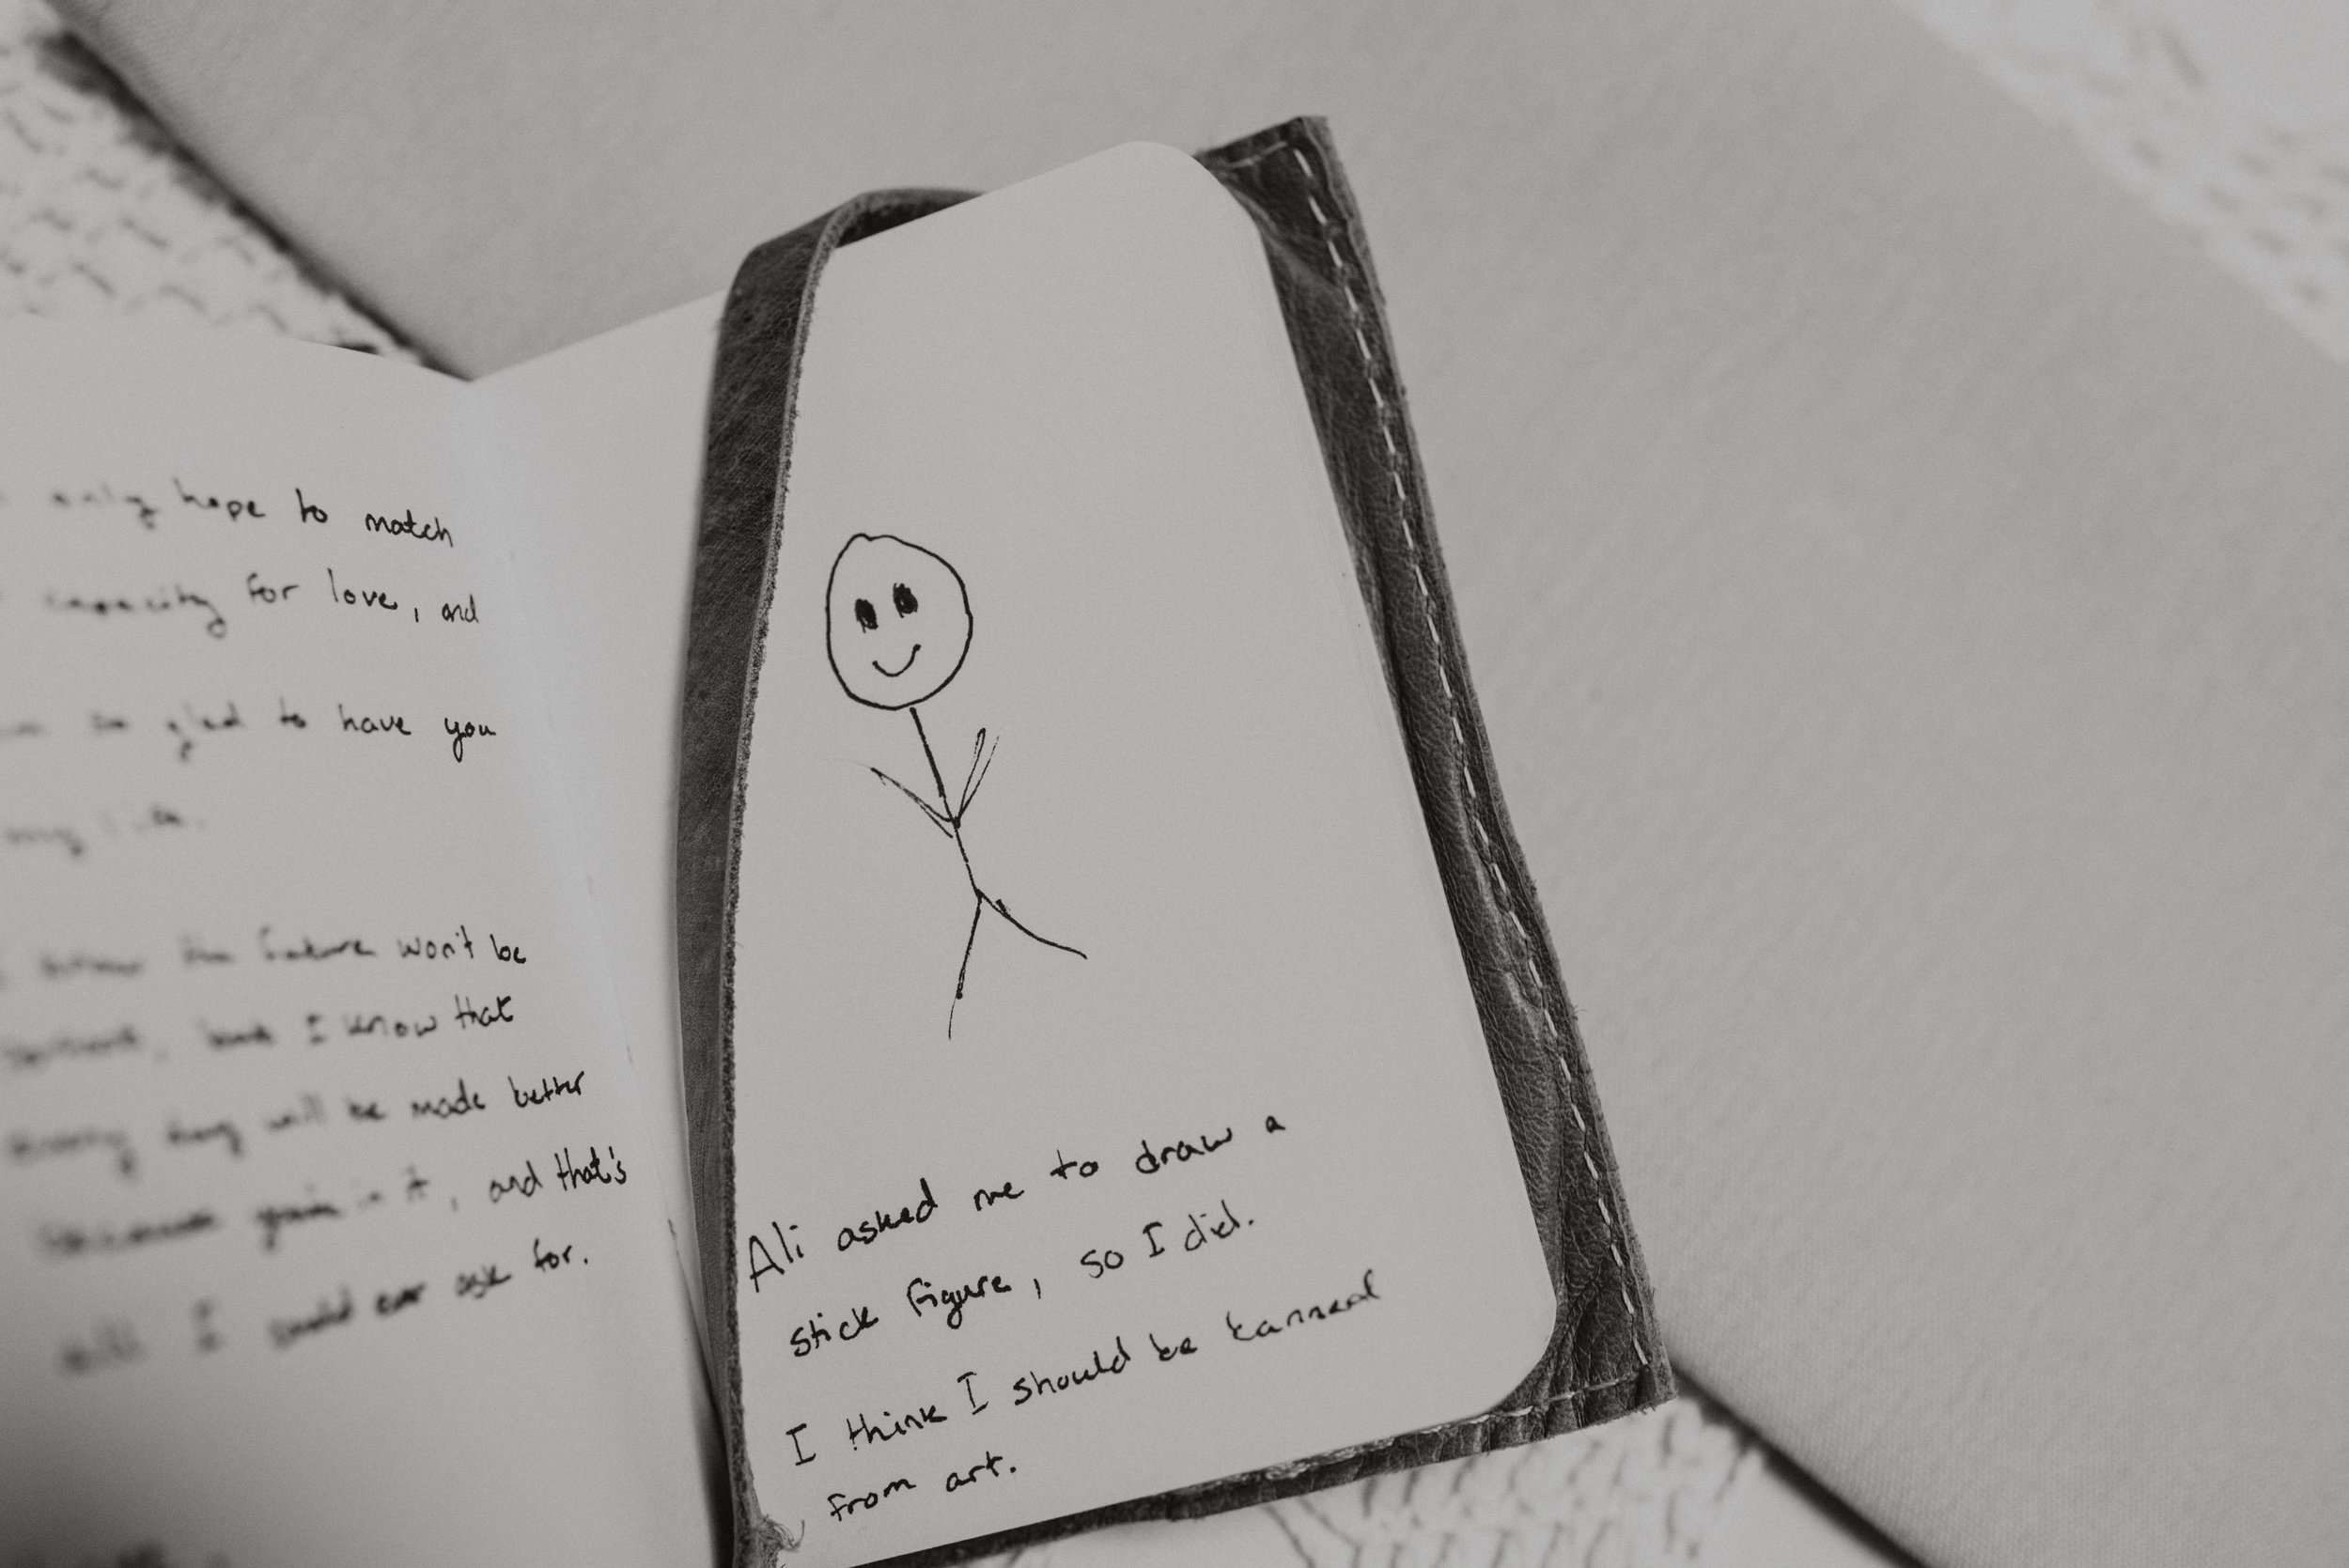 only hope to match
capacity for love, and
so glad to have you
my life.
the future won't be
but I know that
will be made better
in it, and that's
all I could ever ask for.
Ali asked me to draw a
stick figure, so I did.
I think I should be banned
from art.